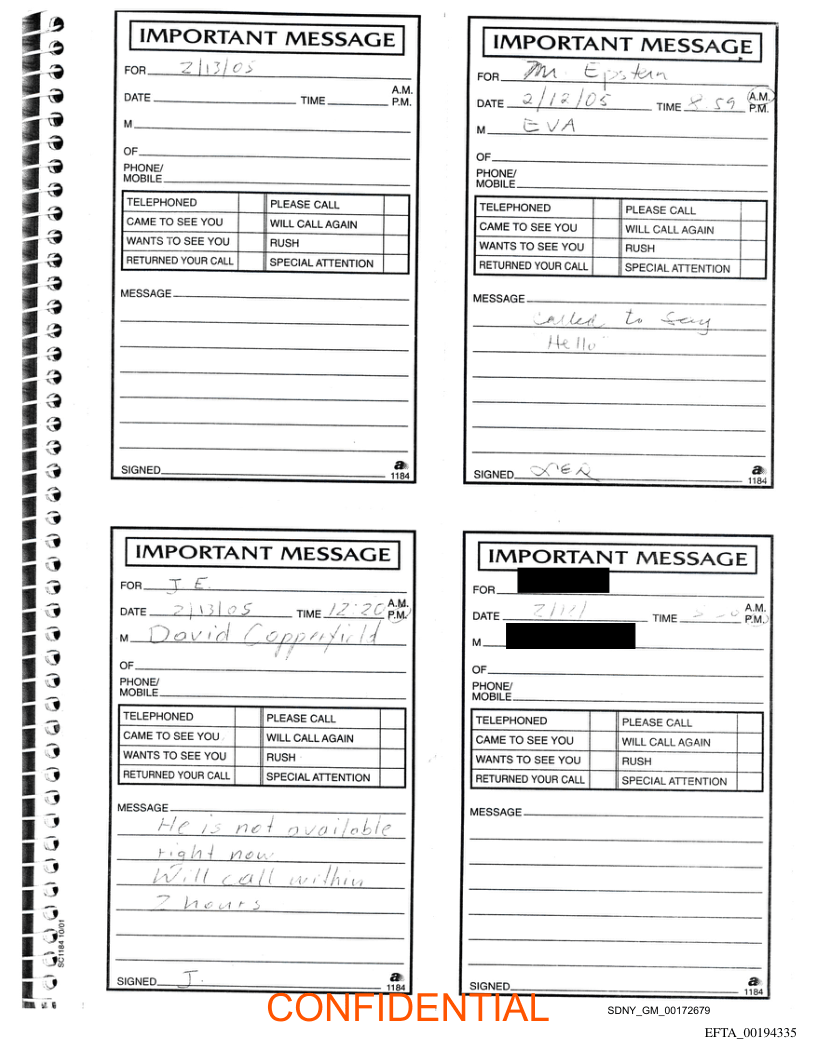 IMPORTANT MESSAGE
FOR 2/13/05
DATE TIME A.M. P.M.
M
OF
PHONE/
MOBILE
TELEPHONED PLEASE CALL
CAME TO SEE YOU WILL CALL AGAIN
WANTS TO SEE YOU RUSH
RETURNED YOUR CALL SPECIAL ATTENTION
MESSAGE
SIGNED
a
1184
IMPORTANT MESSAGE
FOR Mr. Epstein
DATE 2/12/05 TIME 8:59 A.M. P.M.
M EVA
OF
PHONE/
MOBILE
TELEPHONED PLEASE CALL
CAME TO SEE YOU WILL CALL AGAIN
WANTS TO SEE YOU RUSH
RETURNED YOUR CALL SPECIAL ATTENTION
MESSAGE
called to say
"Hello"
SIGNED
a
1184
IMPORTANT MESSAGE
FOR J E.
DATE 2/13/05 TIME 12:20 A.M. P.M.
M David Copperfield
OF
PHONE/
MOBILE
TELEPHONED PLEASE CALL
CAME TO SEE YOU WILL CALL AGAIN
WANTS TO SEE YOU RUSH
RETURNED YOUR CALL SPECIAL ATTENTION
MESSAGE
He is not available
right now
Will call within
2 hours
SIGNED J.
a
1184
IMPORTANT MESSAGE
FOR
DATE TIME A.M. P.M.
M
OF
PHONE/
MOBILE
TELEPHONED PLEASE CALL
CAME TO SEE YOU WILL CALL AGAIN
WANTS TO SEE YOU RUSH
RETURNED YOUR CALL SPECIAL ATTENTION
MESSAGE
SIGNED
a
1184
SC1184 10/01
CONFIDENTIAL
SDNY_GM_00172679
EFTA_00194335